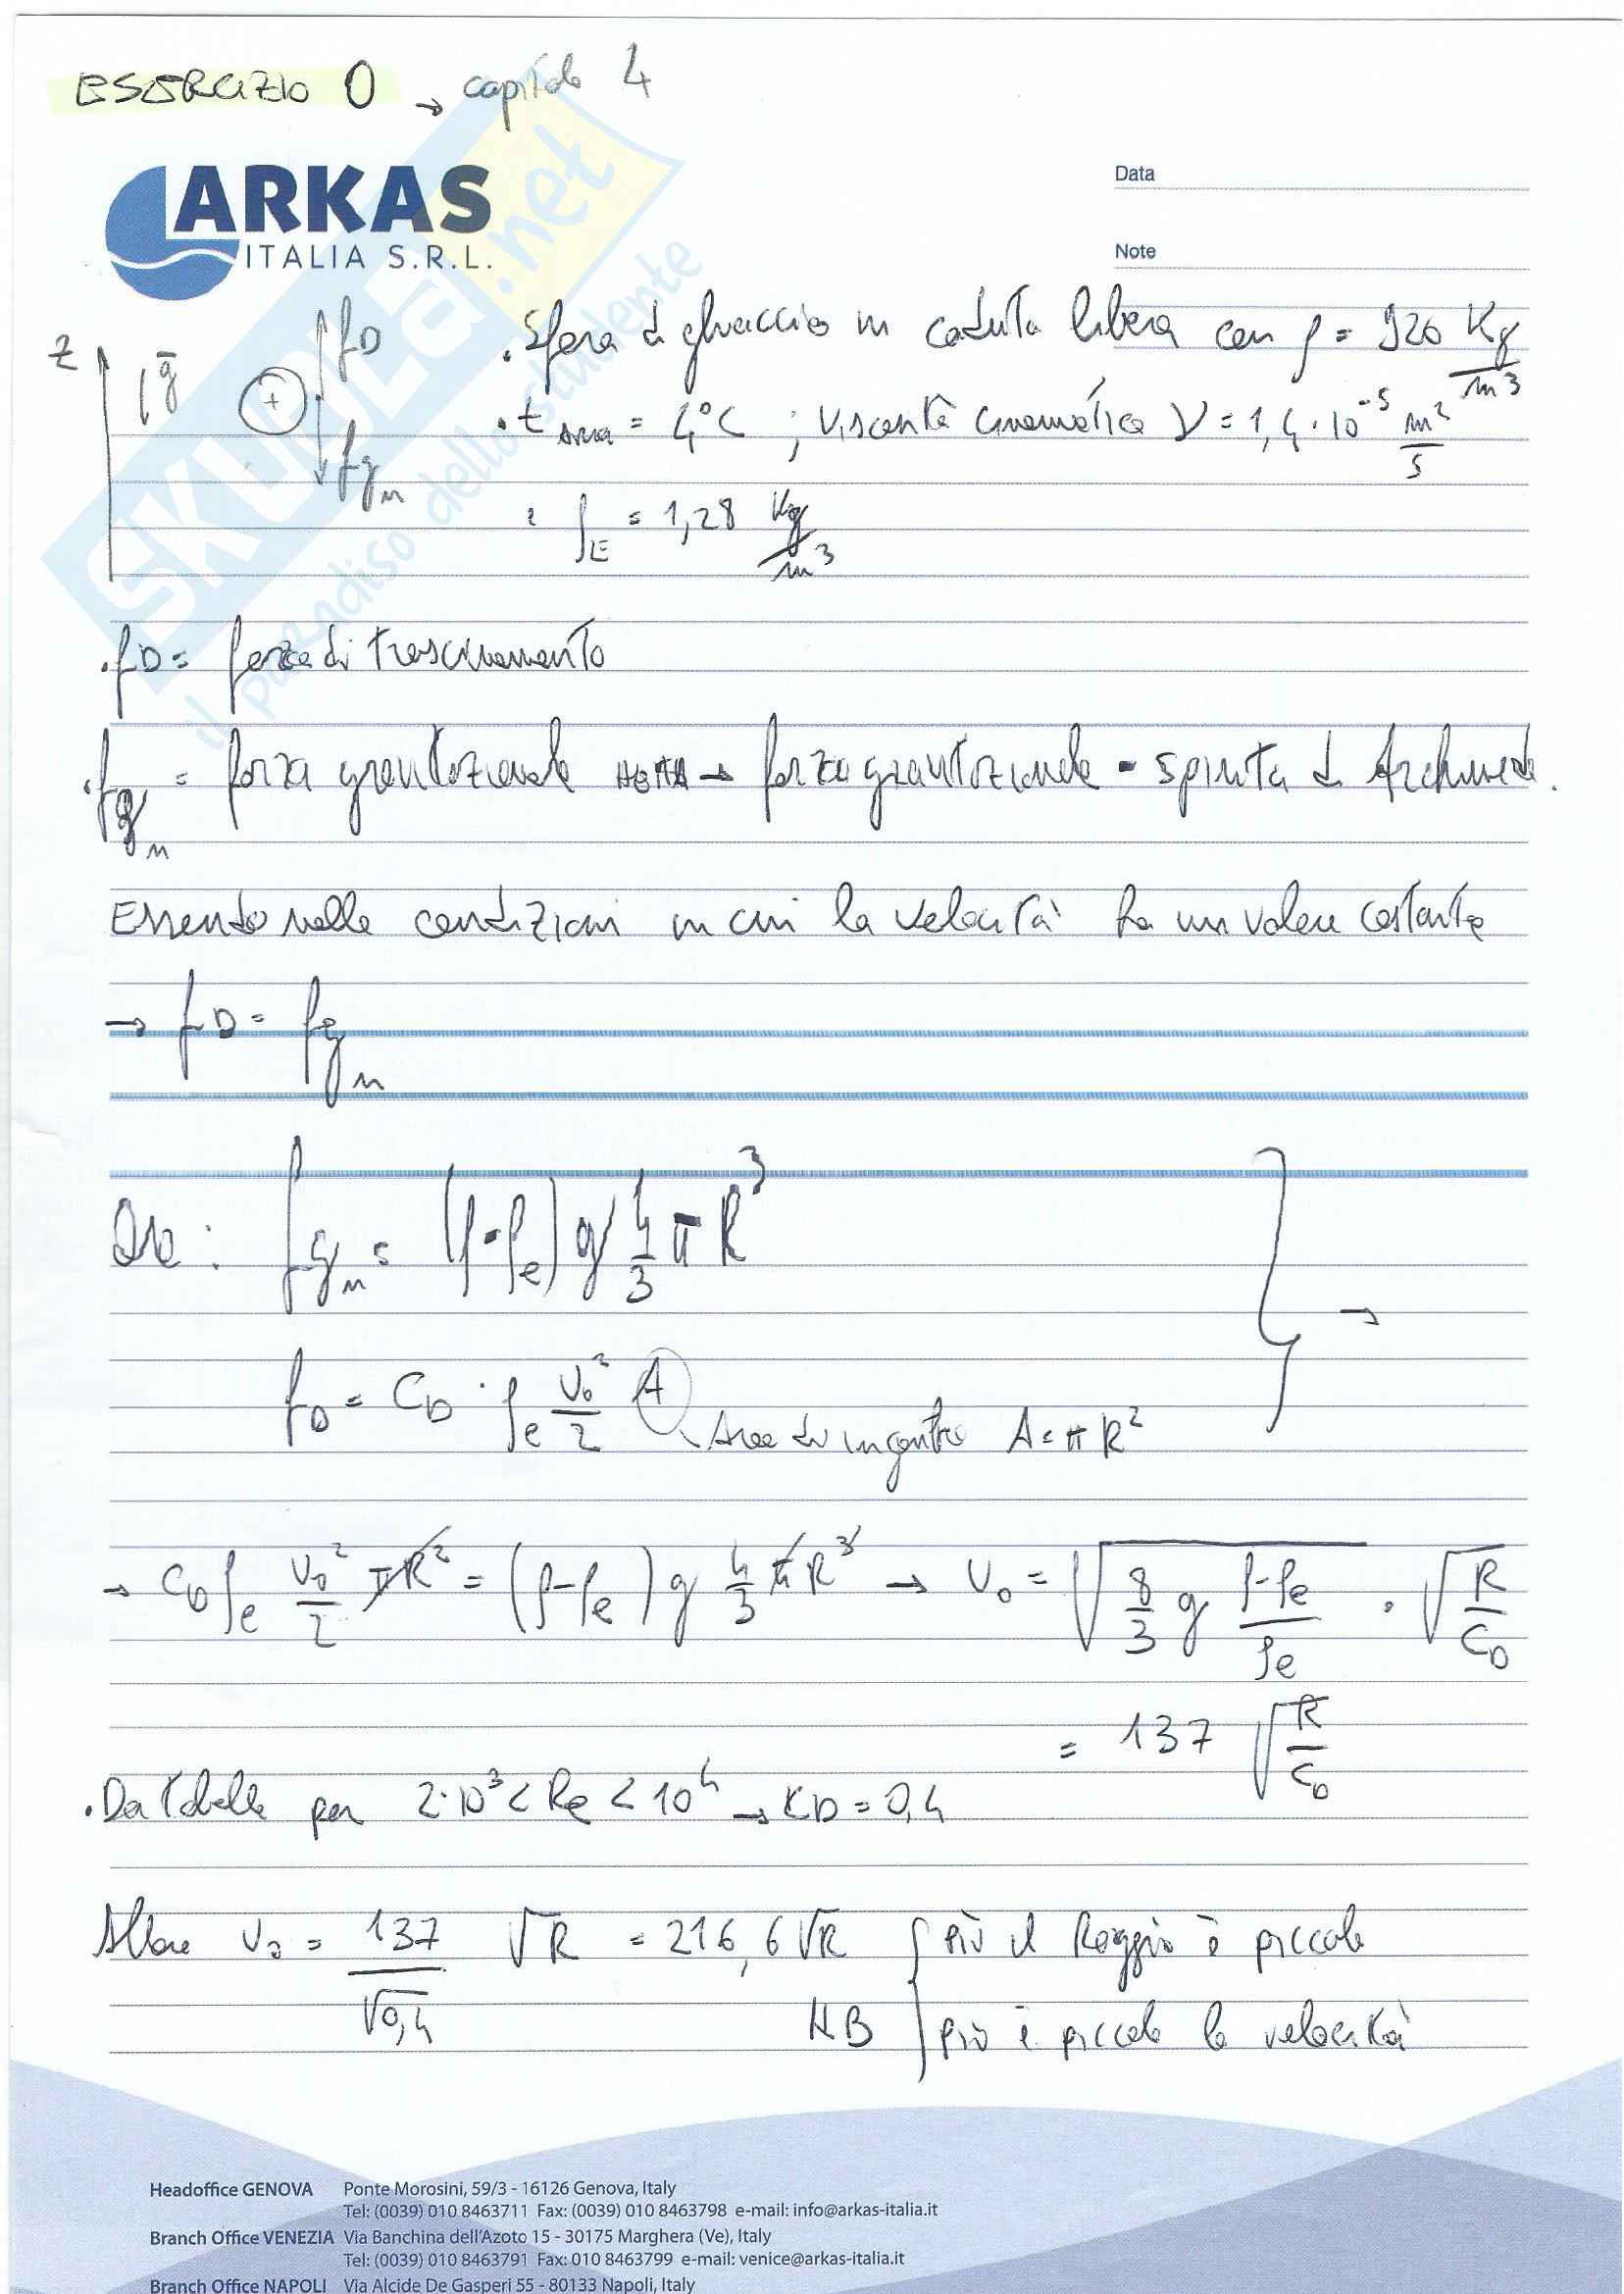 ESERCIZIO 0 → capitolo 4
ARKAS
ITALIA S.R.L.
Data
Note
SKUOLA.net
il paradiso dello studente
z ḡ fD fgn
• Sfera di ghiaccio in caduta libera con ρ = 920 Kg/m³
• t Aria = 4°C ; Viscosità cinematica ν = 1,4 · 10⁻⁵ m²/s
• ρE = 1,28 Kg/m³
• fD = forza di trascinamento
• fgn = forza gravitazionale netta → forza gravitazionale - spinta di Archimede.
Essendo nelle condizioni in cui la velocità ha un valore costante
→ fD = fgn
Ora : fgn = (ρ-ρe) g 4/3 π R³
→
fD = CD · ρe V₀²/2 A
Area di ingombro A = π R²
→ CD ρe V₀²/2 πR² = (ρ-ρe) g 4/3 π R³ → V₀ = √(8/3 g (ρ-ρe)/ρe) · √(R/CD)
= 137 √(R/CD)
• Da tabella per 2·10³ < Re < 10⁴ → CD = 0,4
Allora V₀ = 137/√0,4 √R = 216,6 √R
NB { più il Raggio è piccolo
più è piccola la velocità
Headoffice GENOVA Ponte Morosini, 59/3 - 16126 Genova, Italy
Tel: (0039) 010 8463711 Fax: (0039) 010 8463798 e-mail: info@arkas-italia.it
Branch Office VENEZIA Via Banchina dell'Azoto 15 - 30175 Marghera (Ve), Italy
Tel: (0039) 010 8463791 Fax: 010 8463799 e-mail: venice@arkas-italia.it
Branch Office NAPOLI Via Alcide De Gasperi 55 - 80133 Napoli, Italy